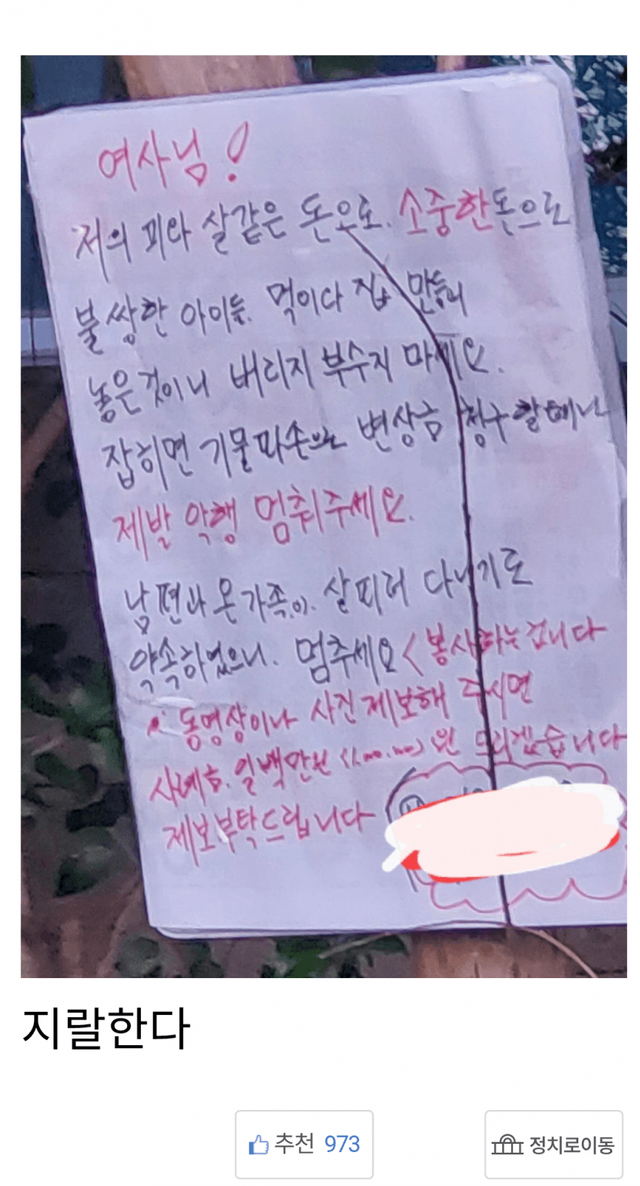 여사님!
저의 피와 살같은 돈으로. 소중한돈으로
불쌍한 아이들. 먹이다 집 만들어
놓은것이니 버리지 부수지 마세요.
잡히면 기물파손으로 변상금 청구할테니
제발 악행 멈춰주세요.
남편과 온가족이. 살피러 다니기로
약속하였으니. 멈추세요<봉사하는겁니다
동영상이나 사진제보해 주시면
사례금. 일백만원 원 드리겠습니다
제보부탁드립니다
지랄한다
추천 973
정치로이동